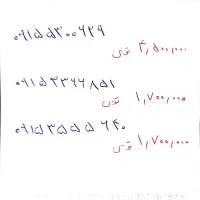 ۰۹۱۵۵۳۰۰۶۲۹
۴,۵۰۰,۰۰۰ تومن
۰۹۱۵۴۳۶۶۸۵۱
۱,۷۰۰,۰۰۰ تومن
۰۹۱۵۳۵۵۵۶۴۰
۱,۷۰۰,۰۰۰ تومن